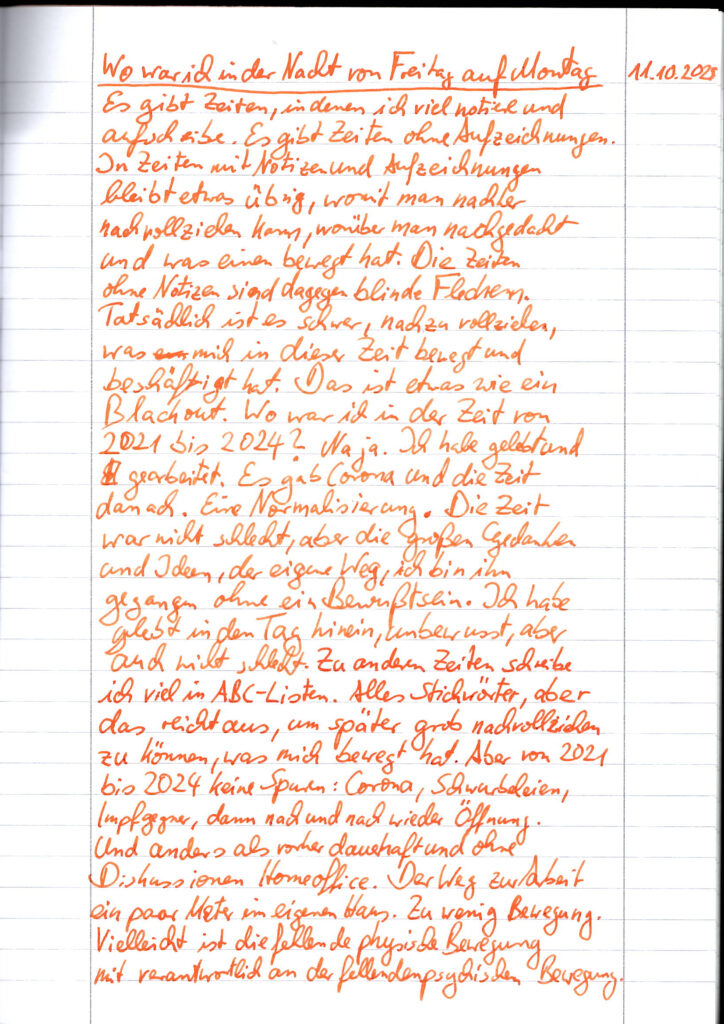 Wo war ich in der Nacht von Freitag auf Montag 11.10.2025
Es gibt Zeiten, in denen ich viel notiere und
aufschreibe. Es gibt Zeiten ohne Aufzeichnungen.
In Zeiten mit Notizen und Aufzeichnungen
bleibt etwas übrig, womit man nachher
nachvollziehen kann, worüber man nachgedacht
und was einen bewegt hat. Die Zeiten
ohne Notizen sind dagegen blinde Flecken.
Tatsächlich ist es schwer, nachzuvollziehen,
was mich in dieser Zeit bewegt und
beschäftigt hat. Das ist etwas wie ein
Blackout. Wo war ich in der Zeit von
2021 bis 2024? Na ja. Ich habe gelebt und
gearbeitet. Es gab Corona und die Zeit
danach. Eine Normalisierung. Die Zeit
war nicht schlecht, aber die großen Gedanken
und Ideen, der eigene Weg, ich bin ihn
gegangen ohne ein Bewußtsein. Ich habe
gelebt in den Tag hinein, unbewusst, aber
auch nicht schlecht. Zu anderen Zeiten schreibe
ich viel in ABC-Listen. Alles Stichwörter, aber
das reicht aus, um später grob nachvollziehen
zu können, was mich bewegt hat. Aber von 2021
bis 2024 keine Spuren: Corona, Schwurbeleien,
Impfgegner, dann nach und nach wieder Öffnung.
Und anders als vorher dauerhaft und ohne
Diskussionen Homeoffice. Der Weg zur Arbeit
ein paar Meter im eigenen Haus. Zu wenig Bewegung.
Vielleicht ist die fehlende physische Bewegung
mit verantwortlich an der fehlenden psychischen Bewegung.